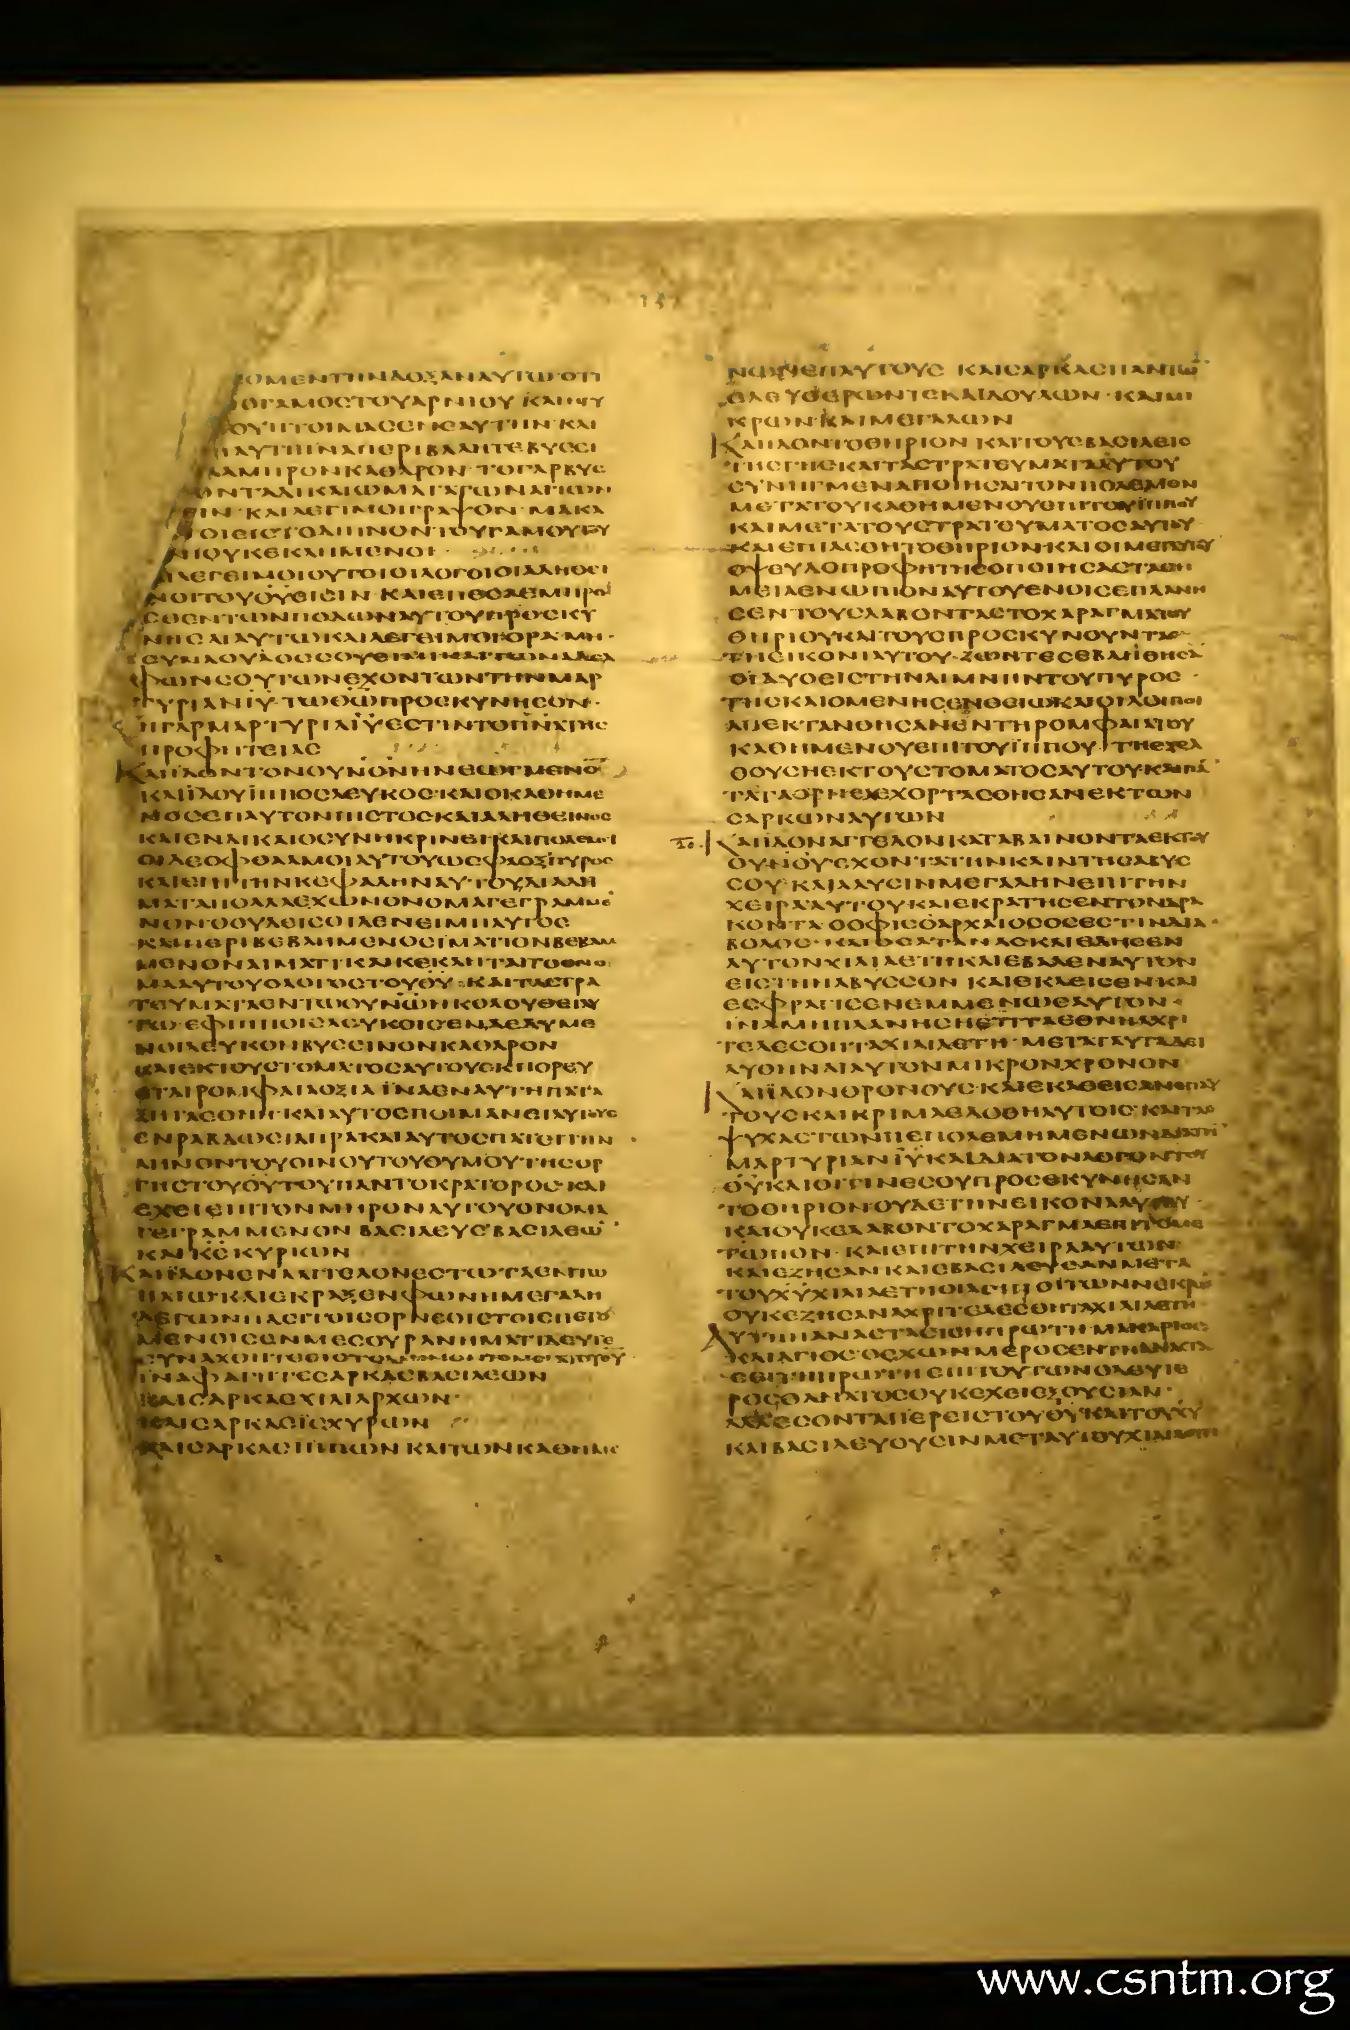 ΟΜΕΝΤΗΝΔΟΞΑΝΑΥΤΩ ΟΤΙ
ΟΓΑΜΟΣΤΟΥΑΡΝΙΟΥ ΚΑΙ
ΑΥΤΗΝ ΚΑΙ
ΛΑΜΠΡΟΝΚΑΘΑΡΟΝ· ΤΟΓΑΡΒΥC
ΚΑΙΛΕΓΙΜΟΙΓΡΑΨΟΝ ΜΑΚΑ
ΚΕΚΛΗΜΕΝΟΙ
CΟΥΤΩΝΕΧΟΝΤΩΝΤΗΝΜΑΡ
ΤΥΡΙΑΝΙΥ· ΤΩΘΩΠΡΟCΚΥΝΗCΟΝ·
ΗΓΑΡΜΑΡΤΥΡΙΑΙΥΕCΤΙΝΤΟΠΝΑΤΗC
ΠΡΟΦΗΤΕΙΑC
ΚΑΙΪΔΟΝΤΟΝΟΥΝΟΝΗΝΕΩΓΜΕΝΟ
ΚΑΙΪΔΟΥΪΠΠΟCΛΕΥΚΟC· ΚΑΙΟΚΑΘΗΜΕ
ΝΟCΕΠΑΥΤΟΝΠΙCΤΟCΚΑΙΑΛΗΘΕΙΝΟC
ΚΑΙΕΝΔΙΚΑΙΟCΥΝΗΚΡΙΝΕΙΚΑΙΠΟΛΕΜΕΙ
ΟΙΔΕΟΦΘΑΛΜΟΙΑΥΤΟΥΩCΦΛΟΞΠΥΡΟC
ΚΑΙΕΠΙΤΗΝΚΕΦΑΛΗΝΑΥΤΟΥΔΙΑΔΗ
ΜΑΤΑΠΟΛΛΑΕΧΩΝΟΝΟΜΑΓΕΓΡΑΜΜΕ
ΝΟΝΟΟΥΔΕΙCΟΙΔΕΝΕΙΜΗΑΥΤΟC
ΚΑΙΠΕΡΙΒΕΒΛΗΜΕΝΟCΪΜΑΤΙΟΝΒΕΒΑΜ
ΜΕΝΟΝΑΙΜΑΤΙ· ΚΑΙΚΕΚΛΗΤΑΙΤΟΟΝΟ
ΜΑΑΥΤΟΥΟΛΟΓΟCΤΟΥΘΥ· ΚΑΙΤΑCΤΡΑ
ΜΟΙΛΕΥΚΟΝΒΥCCΙΝΟΝΚΑΘΑΡΟΝ
ΚΑΙΕΚΤΟΥCΤΟΜΑΤΟCΑΥΤΟΥCΚΠΟΡΕΥ
ΕΤΑΙΡΟΜΦΑΙΑΟΞΙΑΪΝΑΕΝΑΥΤΗΠΑΤΑ
ΕΝΡΑΒΔΩCΙΔΗΡΑΚΑΙΑΥΤΟCΠΑΤΕΙΤΗΝ
ΛΗΝΟΝΤΟΥΟΙΝΟΥΤΟΥΘΥΜΟΥΤΗCΟΡ
ΓΗCΤΟΥΘΥΤΟΥΠΑΝΤΟΚΡΑΤΟΡΟC· ΚΑΙ
ΕΧΕΙΕΠΙΤΟΝΜΗΡΟΝΑΥΤΟΥΟΝΟΜΑ
ΓΕΓΡΑΜΜΕΝΟΝ ΒΑCΙΛΕΥCΒΑCΙΛΕΩ
ΚΑΙΚCΚΥΡΙΩΝ
ΚΑΙΪΔΟΝΕΝΑΑΓΓΕΛΟΝΕCΤΩΤΑΕΝΤΩ
ΗΛΙΩ· ΚΑΙΕΚΡΑΞΕΝΦΩΝΗΜΕΓΑΛΗ
ΛΕΓΩΝΠΑCΙΤΟΙCΟΡΝΕΟΙCΤΟΙCΠΕΤΟ
ΜΕΝΟΙCΕΝΜΕCΟΥΡΑΝΗΜΑΤΙΔΕΥΤΕ
ΪΝΑΦΑΓΗΤΕCΑΡΚΑCΒΑCΙΛΕΩΝ
ΚΑΙCΑΡΚΑCΧΙΛΙΑΡΧΩΝ·
ΚΑΙCΑΡΚΑCΪCΧΥΡΩΝ
ΚΑΙCΑΡΚΑCΙΠΠΩΝ ΚΑΙΤΩΝΚΑΘΗΜΕ
ΝΩΝΕΠΑΥΤΟΥC ΚΑΙCΑΡΚΑCΠΑΝΤΩ
ΕΛΕΥΘΕΡΩΝΤΕΚΑΙΔΟΥΛΩΝ· ΚΑΙΜΙ
ΚΡΩΝΚΑΙΜΕΓΑΛΩΝ
ΚΑΙΪΔΟΝΤΟΘΗΡΙΟΝ ΚΑΙΤΟΥCΒΑCΙΛΕΙC
ΤΗCΓΗCΚΑΙΤΑCΤΡΑΤΕΥΜΑΤΑΑΥΤΟΥ
CΥΝΗΓΜΕΝΑΠΟΙΗCΑΙΤΟΝΠΟΛΕΜΟΝ
ΜΕΤΑΤΟΥΚΑΘΗΜΕΝΟΥΕΠΙΤΟΥΪΠΠΟΥ
ΚΑΙΜΕΤΑΤΟΥCΤΡΑΤΕΥΜΑΤΟCΑΥΤΟΥ
ΜΕΙΑΕΝΩΠΙΟΝΑΥΤΟΥΕΝΟΙCΕΠΛΑΝΗ
CΕΝΤΟΥCΛΑΒΟΝΤΑCΤΟΧΑΡΑΓΜΑΤΟΥ
ΘΗΡΙΟΥΚΑΙΤΟΥCΠΡΟCΚΥΝΟΥΝΤΑC
ΤΗCΙΚΟΝΙΑΥΤΟΥ· ΖΩΝΤΕCΕΒΛΗΘΗCΑ
ΟΙΔΥΟΕΙCΤΗΝΛΙΜΝΗΝΤΟΥΠΥΡΟC·
ΤΗCΚΑΙΟΜΕΝΗCΕΝΘΕΙΩΚΑΙΟΙΛΟΙΠΟΙ
ΑΠΕΚΤΑΝΘΗCΑΝΕΝΤΗΡΟΜΦΑΙΑΤΟΥ
ΚΑΘΗΜΕΝΟΥΕΠΙΤΟΥΪΠΠΟΥ· ΤΗΕΞΕΛ
ΘΟΥCΗΕΚΤΟΥCΤΟΜΑΤΟCΑΥΤΟΥΚΑΙΠΑ
ΤΑΤΑΟΡΝΕΑΕΧΟΡΤΑCΘΗCΑΝΕΚΤΩΝ
CΑΡΚΩΝΑΥΤΩΝ
ΚΑΙΪΔΟΝΑΓΓΕΛΟΝΚΑΤΑΒΑΙΝΟΝΤΑΕΚΤΟΥ
ΟΥΝΟΥΕΧΟΝΤΑΤΗΝΚΛΙΝΤΗCΑΒΥC
CΟΥ· ΚΑΙΑΛΥCΙΝΜΕΓΑΛΗΝΕΠΙΤΗΝ
ΧΕΙΡΑΑΥΤΟΥΚΑΙΕΚΡΑΤΗCΕΝΤΟΝΔΡΑ
ΚΟΝΤΑ· ΟΟΦΙCΟΑΡΧΑΙΟCΟCΕCΤΙΝΔΙΑ
ΒΟΛΟC· ΚΑΙΟCΑΤΑΝΑCΚΑΙΕΔΗCΕΝ
ΑΥΤΟΝΧΙΛΙΑΕΤΗΚΑΙΕΒΑΛΕΝΑΥΤΟΝ
ΕΙCΤΗΝΑΒΥCCΟΝ ΚΑΙΕΚΛΕΙCΕΝΚΑΙ
ΪΝΑΜΗΠΛΑΝΗCΗΕΤΙΤΑΕΘΝΗΑΧΡΙ
ΤΕΛΕCΘΗΤΑΧΙΛΙΑΕΤΗ· ΜΕΤΑΤΑΥΤΑΔΕΙ
ΛΥΘΗΝΑΙΑΥΤΟΝΜΙΚΡΟΝΧΡΟΝΟΝ
ΚΑΙΪΔΟΝΘΡΟΝΟΥC· ΚΑΙΕΚΑΘΕΙCΑΝΕΠΑΥ
ΤΟΥCΚΑΙΚΡΙΜΑΕΔΟΘΗΑΥΤΟΙC· ΚΑΙΤΑC
ΜΑΡΤΥΡΙΑΝΙΥΚΑΙΔΙΑΤΟΝΛΟΓΟΝΤΟΥ
ΘΥΚΑΙΟΙΤΙΝΕCΟΥΠΡΟCΕΚΥΝΗCΑΝ
ΤΟΘΗΡΙΟΝΟΥΔΕΤΗΝΕΙΚΟΝΑΑΥΤΟΥ·
ΚΑΙΟΥΚΕΛΑΒΟΝΤΟΧΑΡΑΓΜΑΕΠΙΤΟΜΕ
ΤΩΠΟΝ· ΚΑΙΕΠΙΤΗΝΧΕΙΡΑΑΥΤΩΝ
ΚΑΙΕΖΗCΑΝΚΑΙΕΒΑCΙΛΕΥCΑΝΜΕΤΑ
ΤΟΥΧΥΧΙΛΙΑΕΤΗΟΙΛΟΙΠΟΙΤΩΝΝΕΚΡΩ
ΟΥΚΕΖΗCΑΝΑΧΡΙΤΕΛΕCΘΗΤΑΧΙΛΙΑΕΤΗ·
ΑΥΤΗΗΑΝΑCΤΑCΙCΗΠΡΩΤΗ· ΜΑΚΑΡΙΟC
ΚΑΙΑΓΙΟC· ΟΕΧΩΝΜΕΡΟCΕΝΤΗΑΝΑCΤΑ
CΕΙΤΗΠΡΩΤΗΕΠΙΤΟΥΤΩΝΟΔΕΥΤΕ
ΡΟCΘΑΝΑΤΟCΟΥΚΕΧΕΙΕΞΟΥCΙΑΝ·
ΑΛΛΕCΟΝΤΑΙΪΕΡΕΙCΤΟΥΘΥΚΑΙΤΟΥΧΥ
ΚΑΙΒΑCΙΛΕΥΟΥCΙΝΜΕΤΑΥΤΟΥΧΙΛΙΑΕΤΗ
www.csntm.org